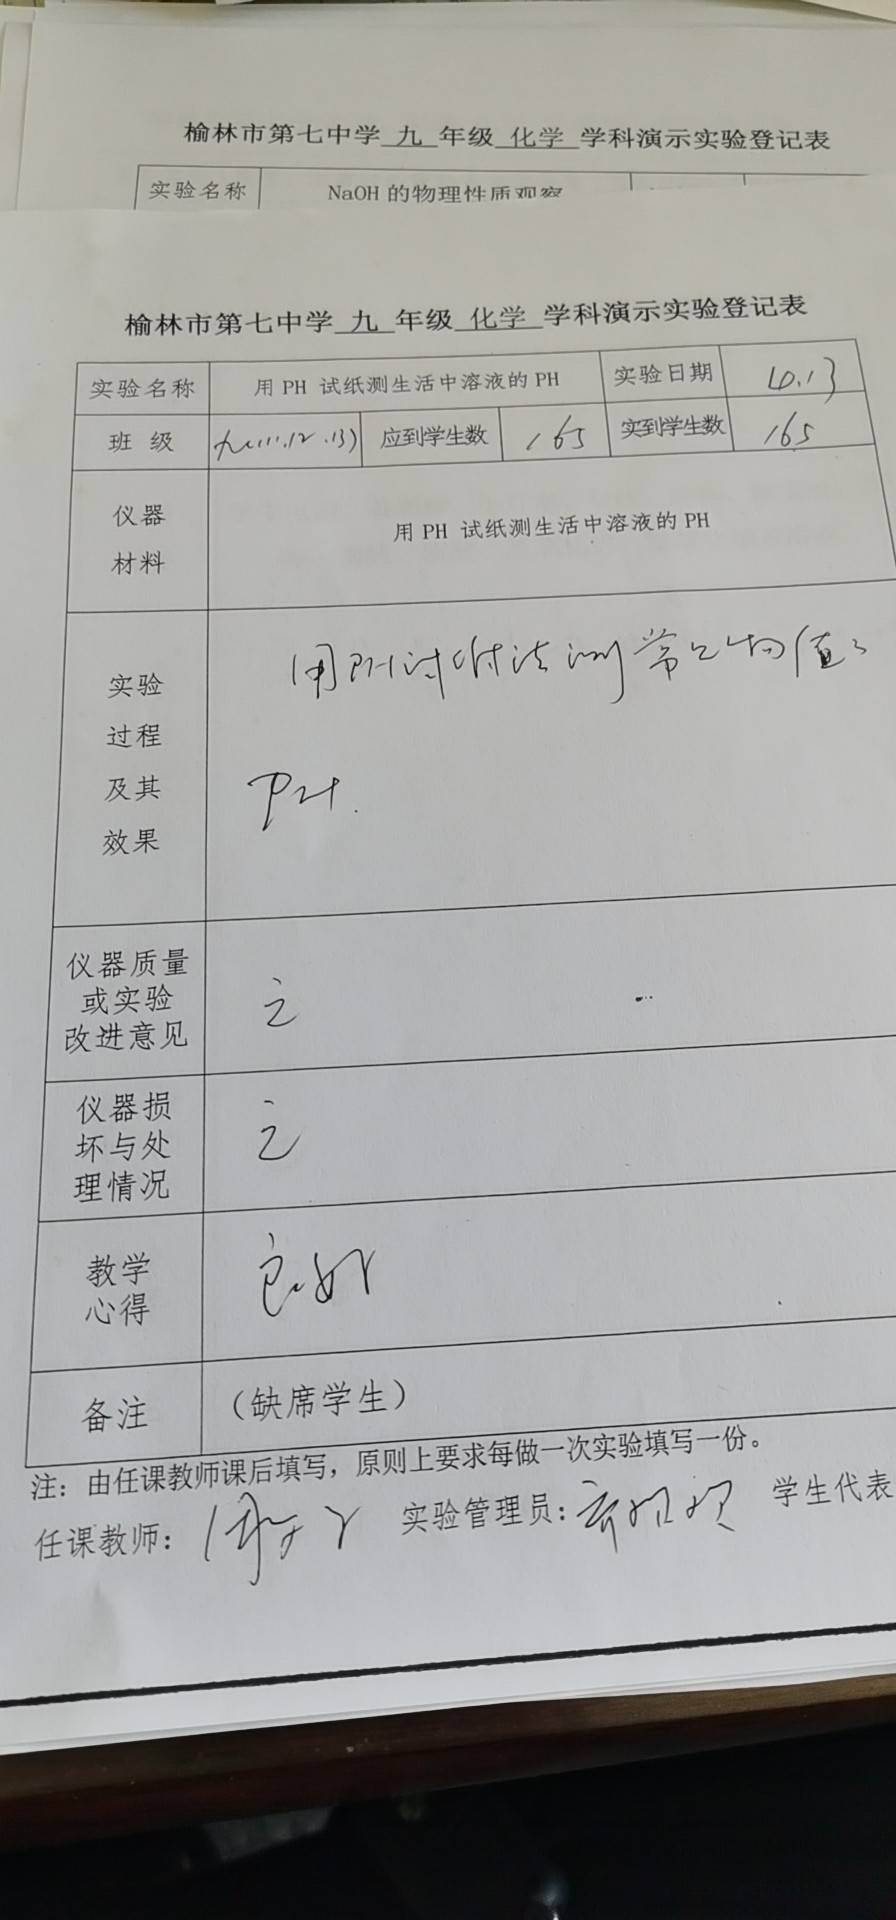 榆林市第七中学 九 年级 化学 学科演示实验登记表
实验名称 NaOH 的物理性质观察
榆林市第七中学 九 年级 化学 学科演示实验登记表
实验名称 用 PH 试纸测生活中溶液的 PH 实验日期
班 级 九(11.12.13) 应到学生数 165 实到学生数 165
仪器
材料
用 PH 试纸测生活中溶液的 PH
实验
过程
及其
效果
用PH试纸法测常见物
PH.
仪器质量
或实验
改进意见
仪器损
坏与处
理情况
教学
心得
良好
备注 (缺席学生)
注：由任课教师课后填写，原则上要求每做一次实验填写一份。
任课教师： 实验管理员： 学生代表